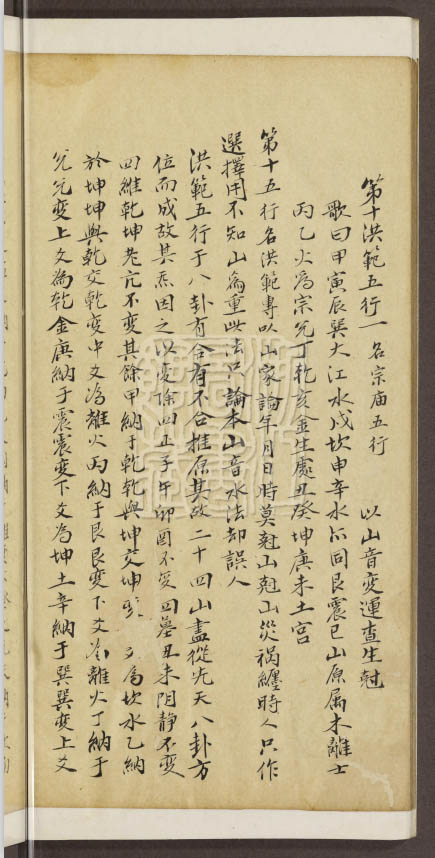 第十洪範五行一名宗庙五行 以山音変運查生尅
歌曰甲寅辰巽大江水戌坎申辛水亦同艮震巳山原属木離壬
丙乙火為宗兑丁乾亥金生處丑癸坤庚未土宫
第十五行名洪範専以山家論年月日時莫尅山尅山災祸纏時人只作
選擇用不知山為重此法只論本山音水法却誤人
洪範五行于八卦有合有不合推原其故二十四山盡從先天八卦方
位而成故其炁因之以変除四正子午卯酉不変四墓丑未阴静不変
四維乾坤老亢不変其餘甲納于乾乾與坤交坤 爻為坎水乙納
於坤坤與乾交乾変中爻為離火丙納于艮艮変下爻为離火丁納于
兑兑変上爻為乾金庚納于震震変下爻為坤土辛納于巽巽変上爻